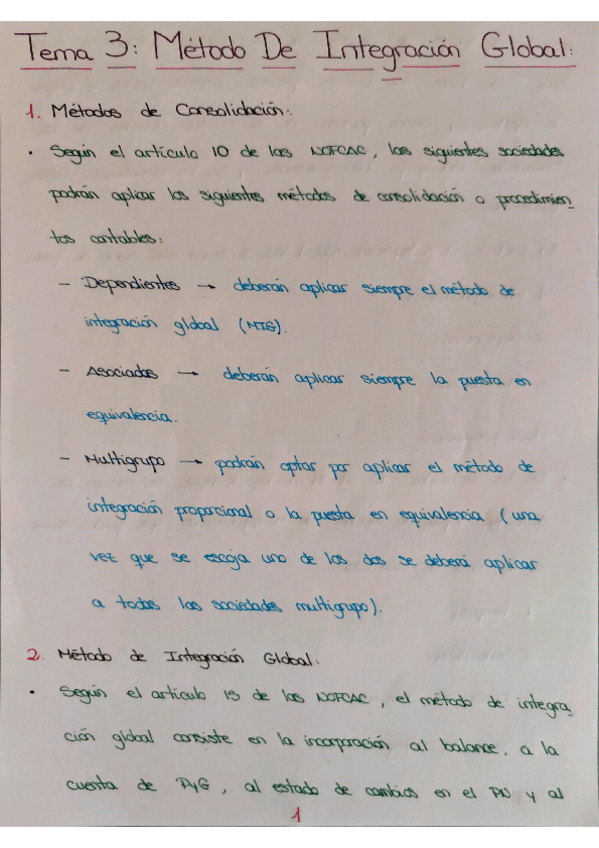 Tema 3: Método De Integración Global:
1. Métodos de Consolidación:
• Según el artículo 10 de las NOFCAC, las siguientes sociedades
podrán aplicar los siguientes métodos de consolidación o procedimien
tos contables:
- Dependientes → deberán aplicar siempre el método de
integración global (MIG).
- Asociadas → deberán aplicar siempre la puesta en
equivalencia.
- Multigrupo → podrán optar por aplicar el método de
integración proporcional o la puesta en equivalencia (una
vez que se escoja uno de los dos se deberá aplicar
a todas las sociedades multigrupo).
2. Método de Integración Global:
• Según el artículo 15 de las NOFCAC, el método de integra
ción global consiste en la incorporación al balance, a la
cuenta de PyG, al estado de cambios en el PN y al
1